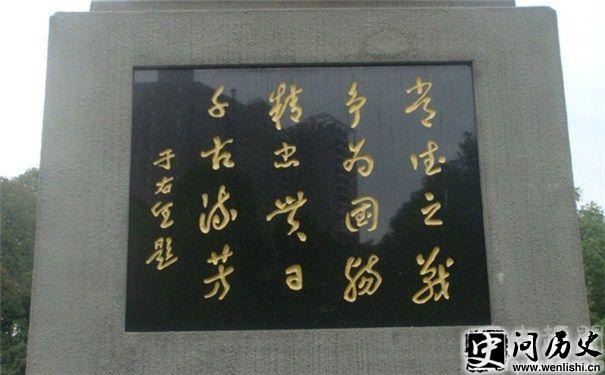 常德之戰
争为國殤
精忠贯日
千古流芳
于右任題
问历史
www.wenlishi.cn